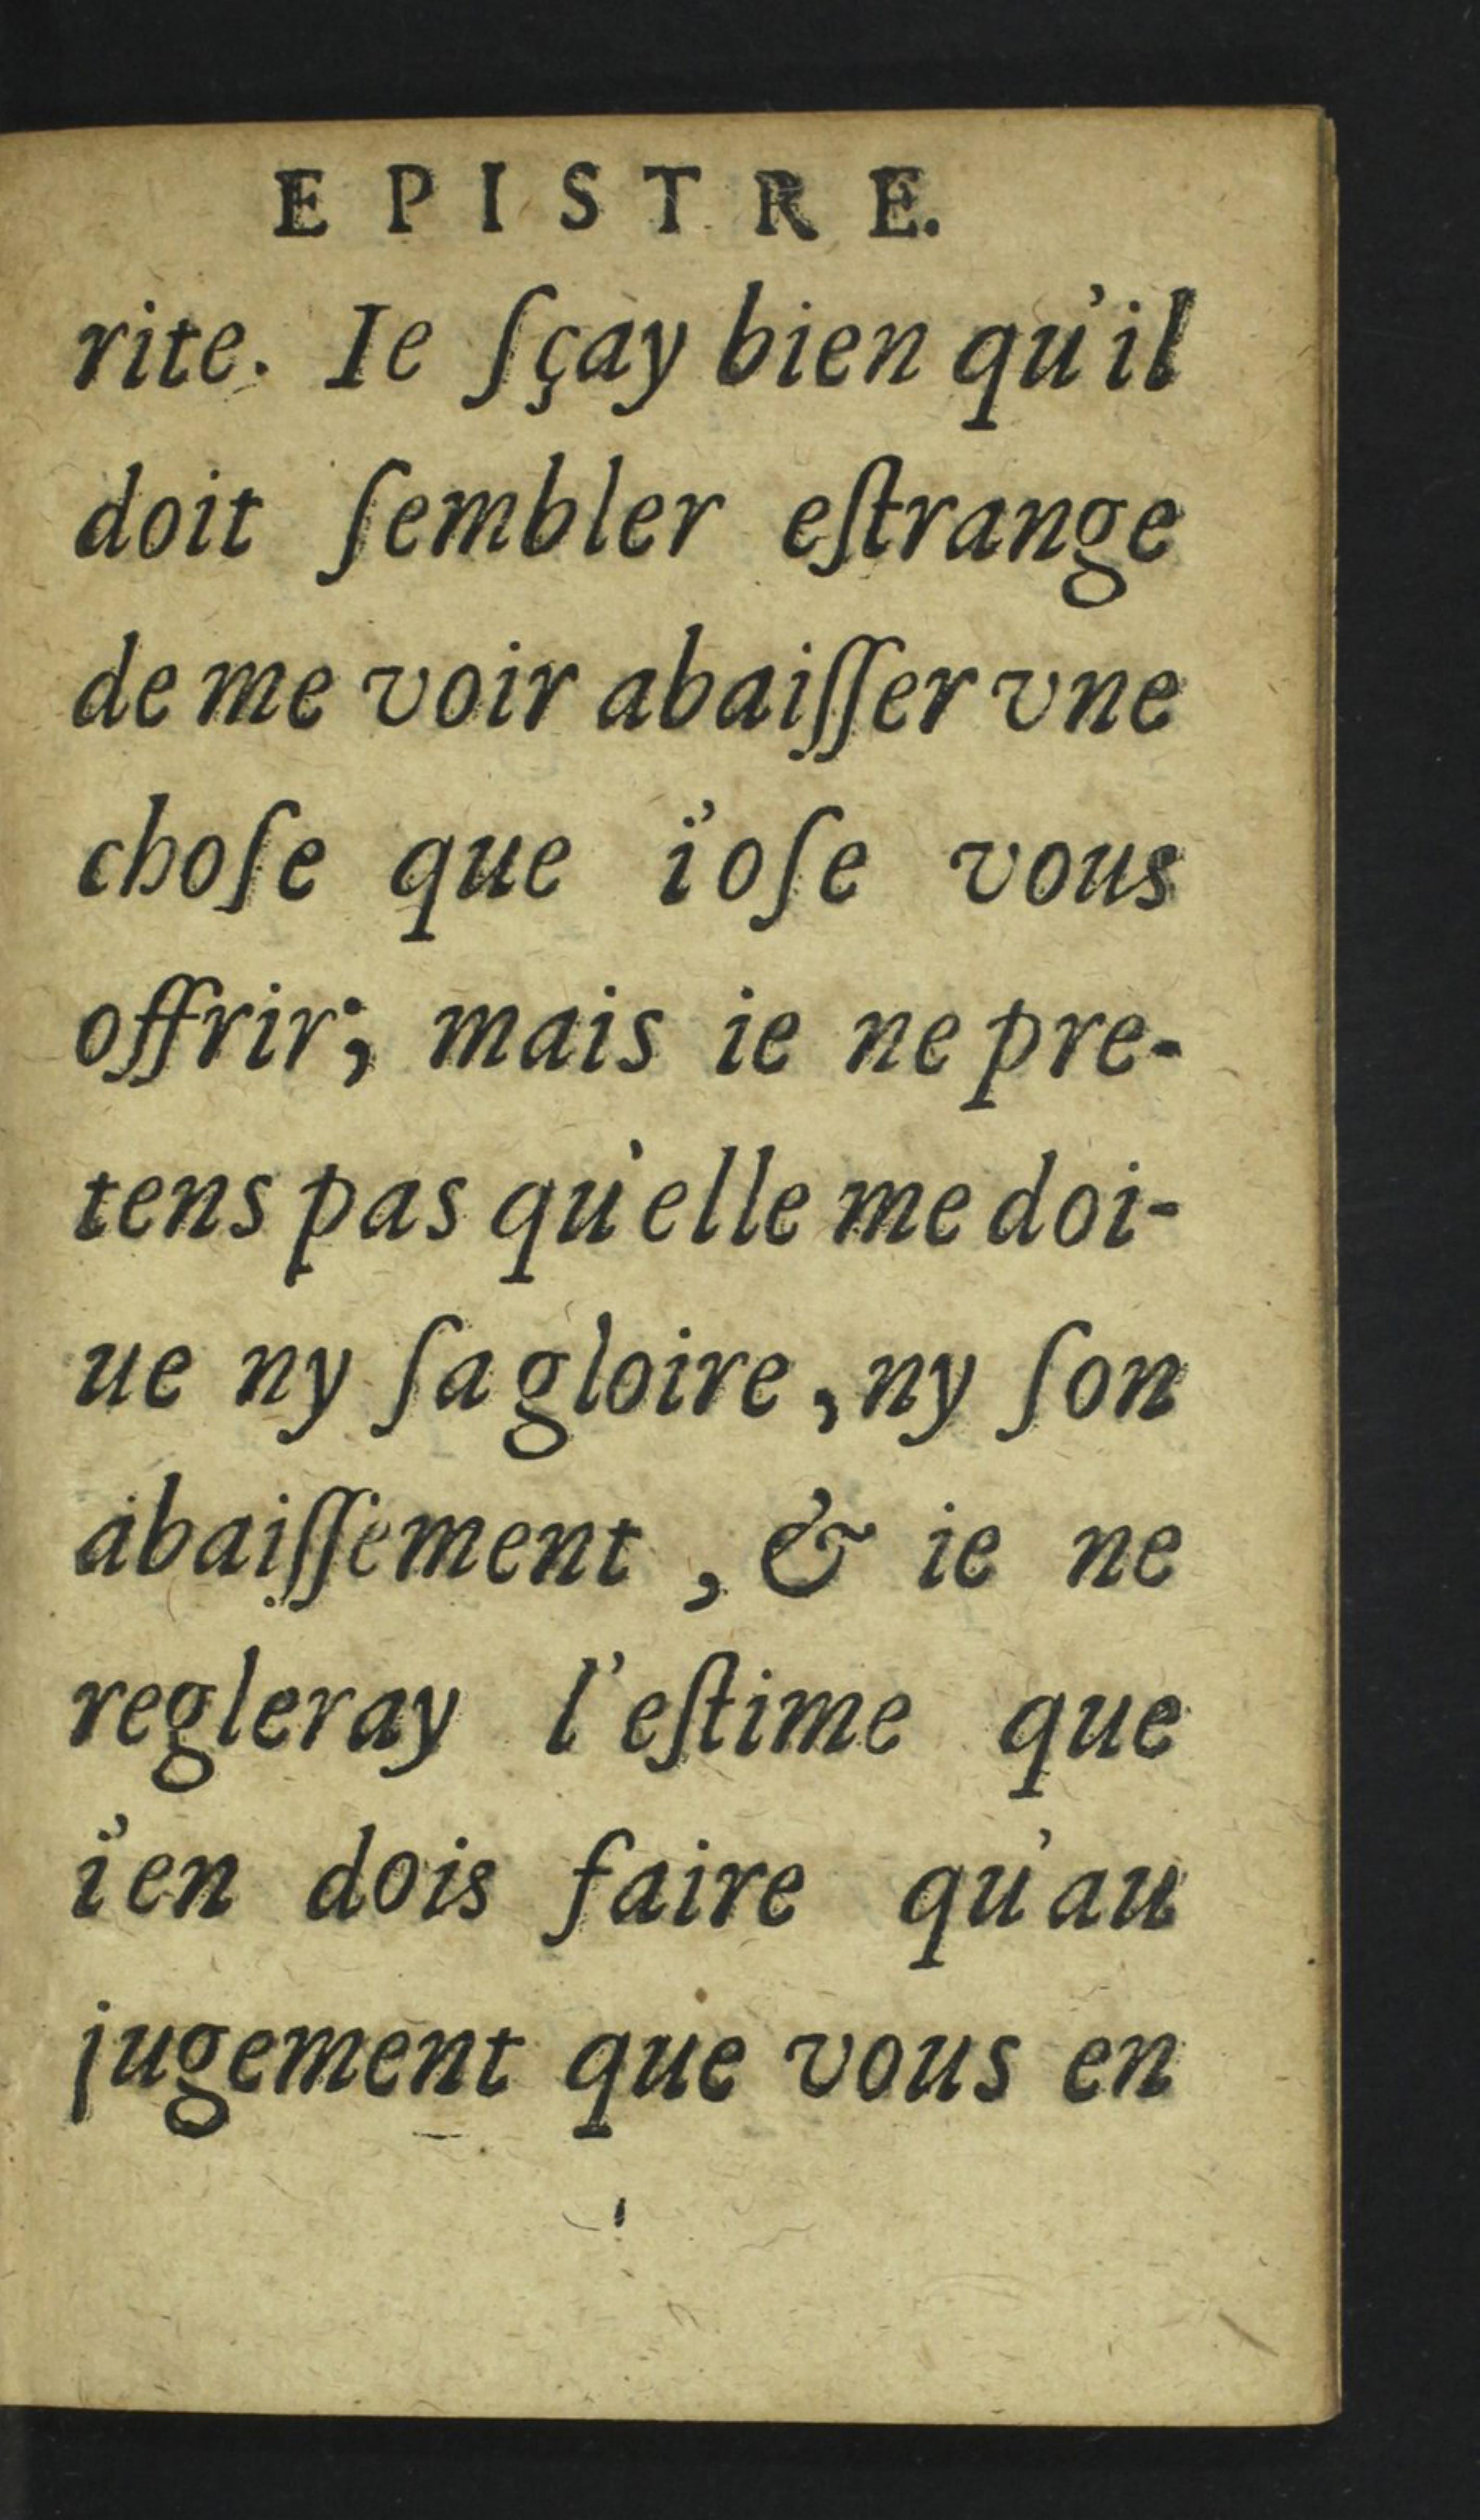 EPISTRE.
rite. Ie ſçay bien qu'il
doit ſembler eſtrange
de me voir abaiſſer vne
choſe que i'oſe vous
offrir; mais ie ne pre-
tens pas qu'elle me doi-
ue ny ſa gloire, ny ſon
abaiſſement, & ie ne
regleray l'eſtime que
i'en dois faire qu'au
jugement que vous en